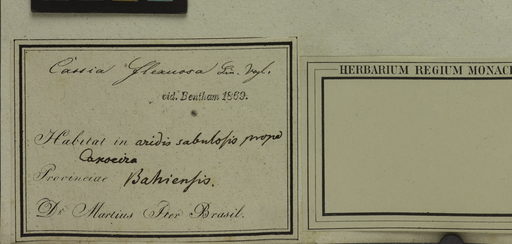 Cassia flexuosa Lin. Vog.
vid. Bentham 1869.
Habitat in aridis sabulosis prope
Caxoeira
Provinciae Bahiensis.
Dr. Martius Iter Brasil.
HERBARIUM REGIUM MONAC